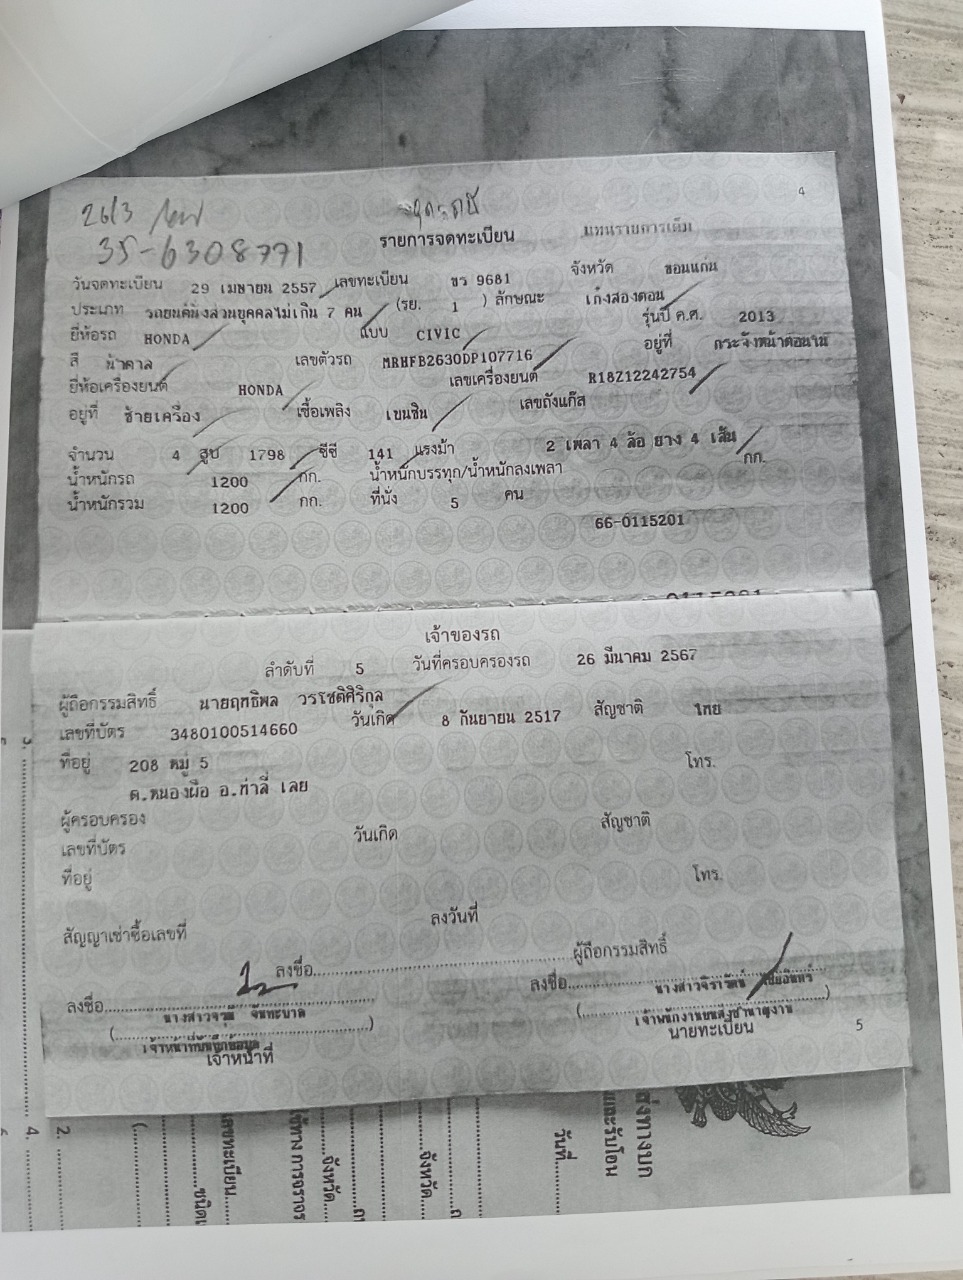 4
26/3
35-6308771
รายการจดทะเบียน แทนรายการเดิม
วันจดทะเบียน 29 เมษายน 2557 เลขทะเบียน ขว 9681 จังหวัด ขอนแก่น
ประเภท รถยนต์นั่งส่วนบุคคลไม่เกิน 7 คน (รย. 1 ) ลักษณะ เก๋งสองตอน
ยี่ห้อรถ HONDA แบบ CIVIC รุ่นปี ค.ศ. 2013
สี น้ำตาล เลขตัวรถ MRHFB2630DP107716 อยู่ที่ กระจังหน้าตอนใน
ยี่ห้อเครื่องยนต์ HONDA เลขเครื่องยนต์ R18Z12242754
อยู่ที่ ซ้ายเครื่อง เชื้อเพลิง เบนซิน เลขถังแก๊ส
จำนวน 4 สูบ 1798 ซีซี 141 แรงม้า 2 เพลา 4 ล้อ ยาง 4 เส้น
น้ำหนักรถ 1200 กก. น้ำหนักบรรทุก/น้ำหนักลงเพลา กก.
น้ำหนักรวม 1200 กก. ที่นั่ง 5 คน
66-0115201
เจ้าของรถ
ลำดับที่ 5 วันที่ครอบครองรถ 26 มีนาคม 2567
ผู้ถือกรรมสิทธิ์ นายฤทธิพล วรโชติศิริกุล
เลขที่บัตร 3480100514660 วันเกิด 8 กันยายน 2517 สัญชาติ ไทย
ที่อยู่ 208 หมู่ 5 โทร.
ต.หนองผือ อ.ท่าลี่ เลย
ผู้ครอบครอง
เลขที่บัตร วันเกิด สัญชาติ
ที่อยู่ โทร.
สัญญาเช่าซื้อเลขที่ ลงวันที่
ลงชื่อ ผู้ถือกรรมสิทธิ์
ลงชื่อ ลงชื่อ
นางสาวจุฬี จันทะบาล นางสาวจิราวัฒน์ ไชยอินทร์
เจ้าหน้าที่บันทึกข้อมูล เจ้าพนักงานขนส่งชำนาญงาน
เจ้าหน้าที่ นายทะเบียน
5
2.
4.
วันที่
จังหวัด